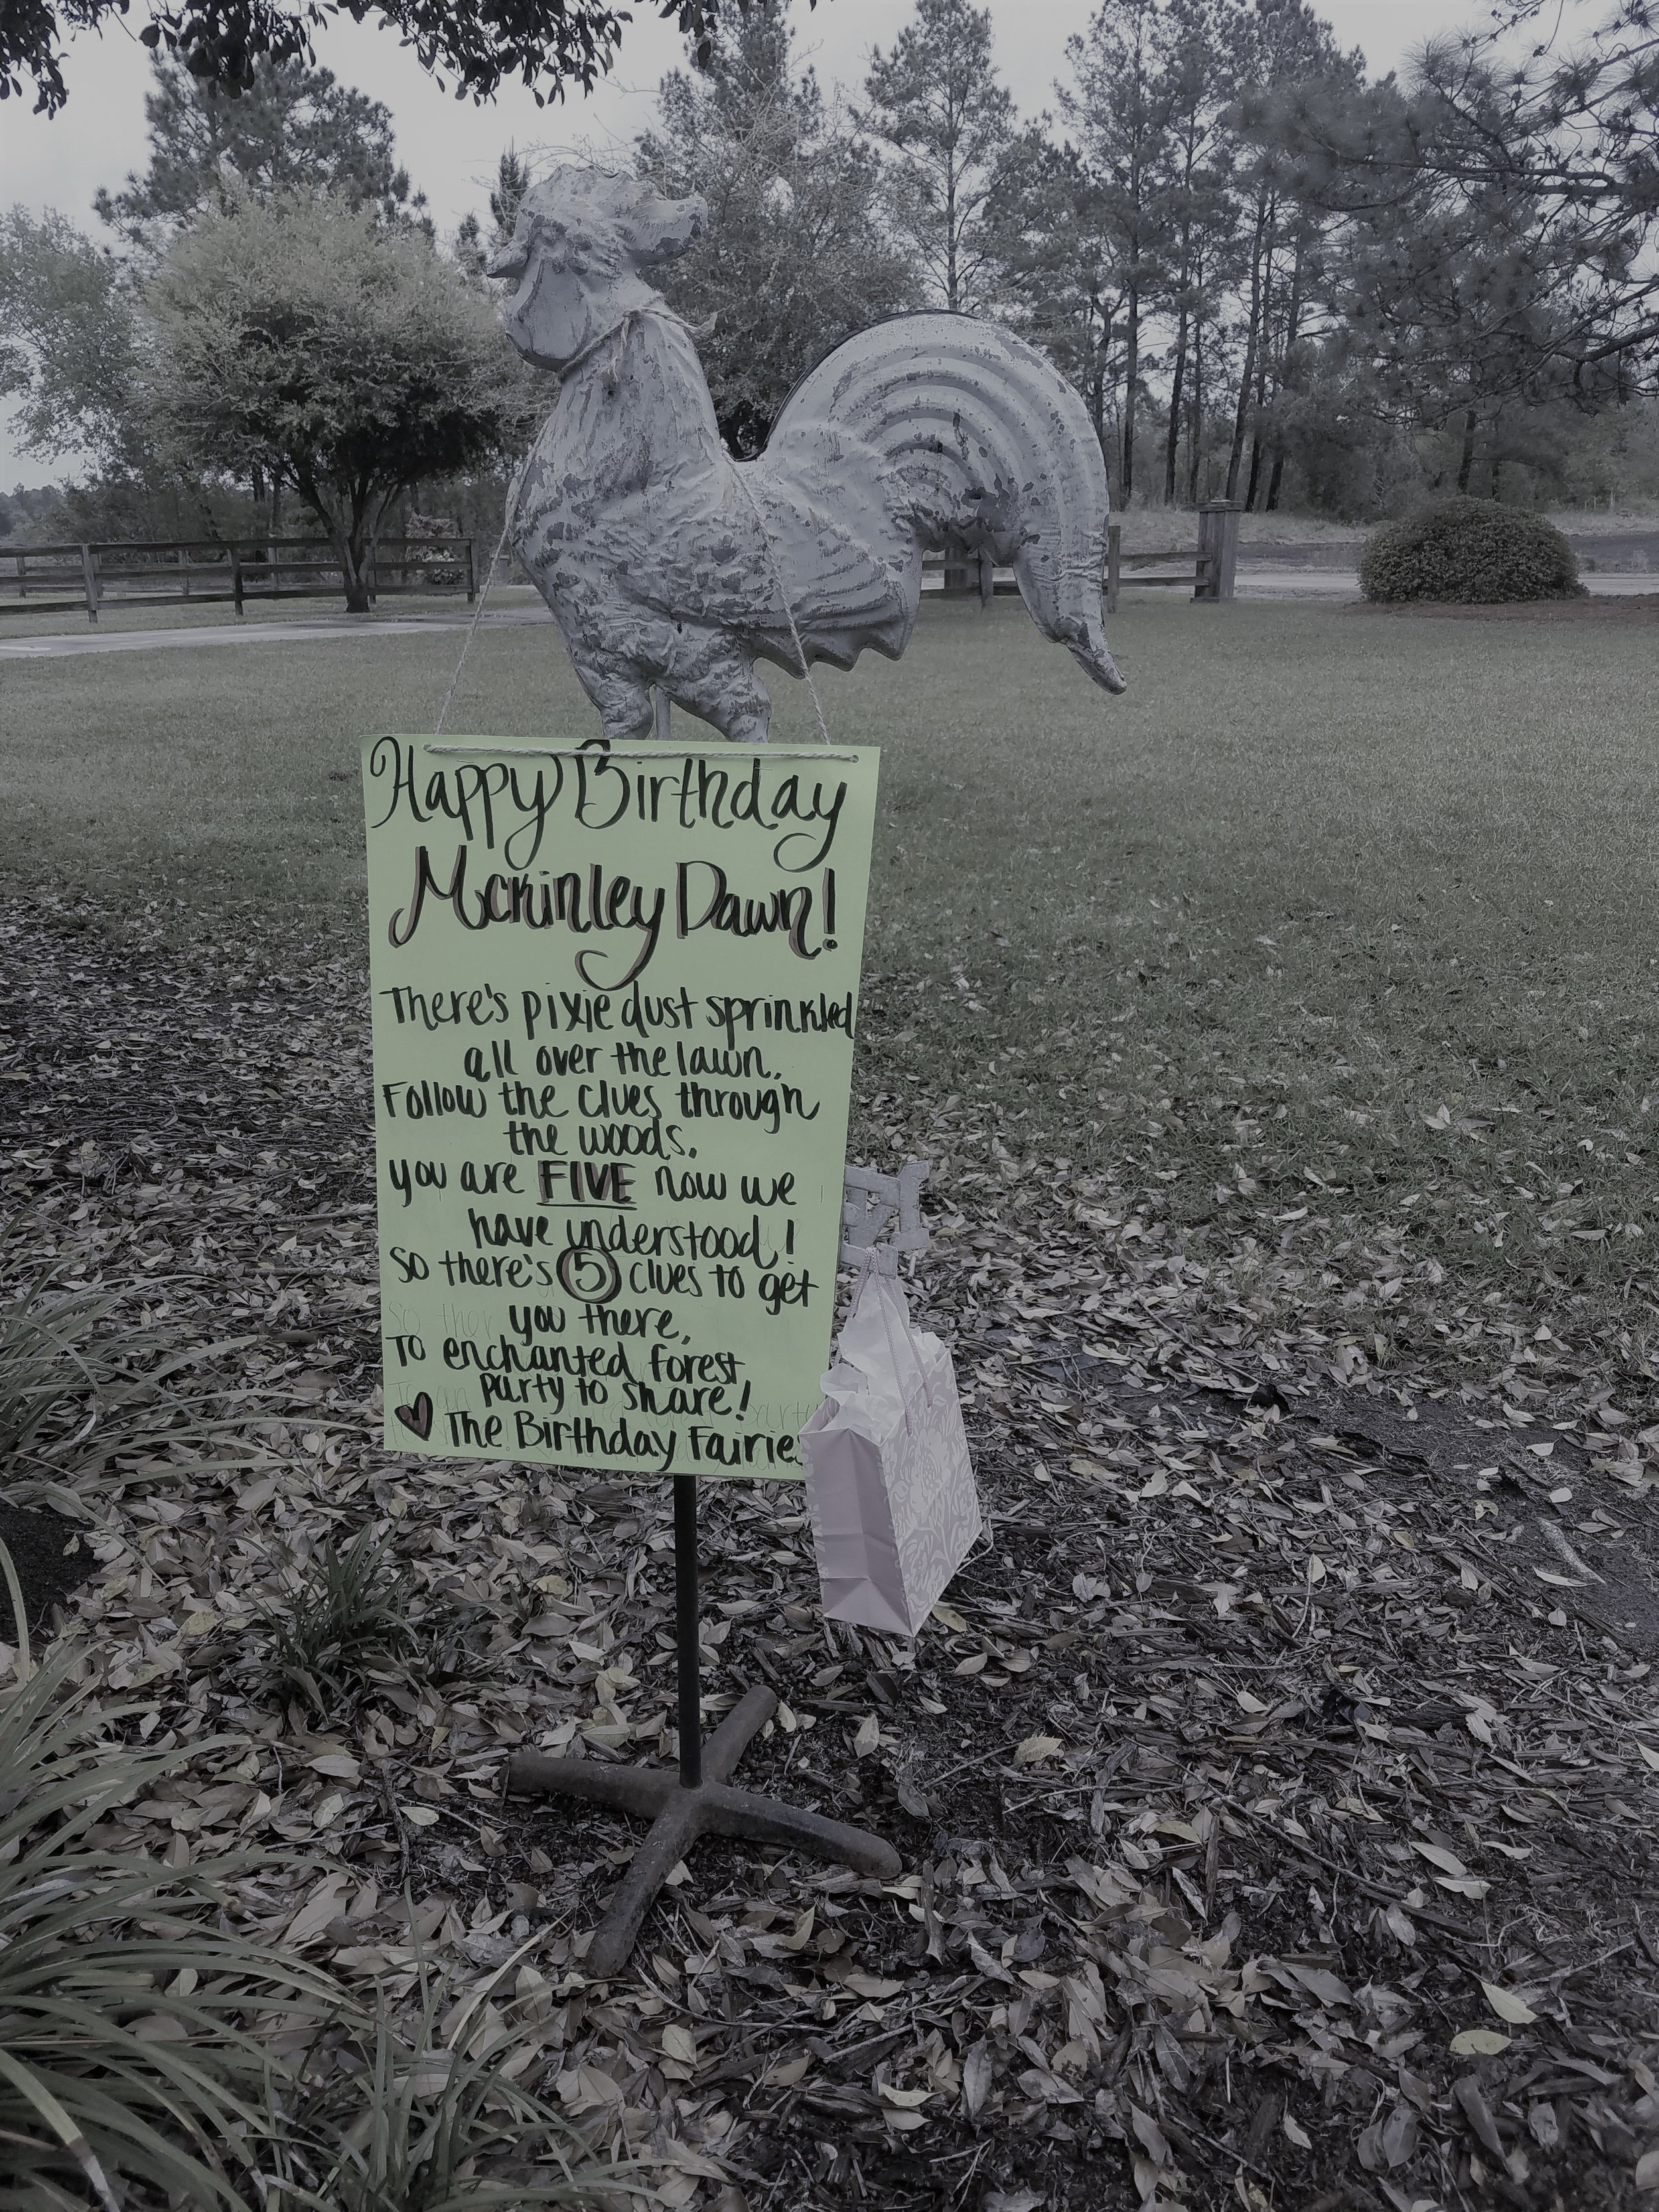 Happy Birthday
Mckinley Dawn!
There's pixie dust sprinkled
all over the lawn.
Follow the clues through
the woods.
you are FIVE now we
have understood!
So there's 5 clues to get
you there,
To enchanted forest
party to share!
♥ The Birthday Fairies